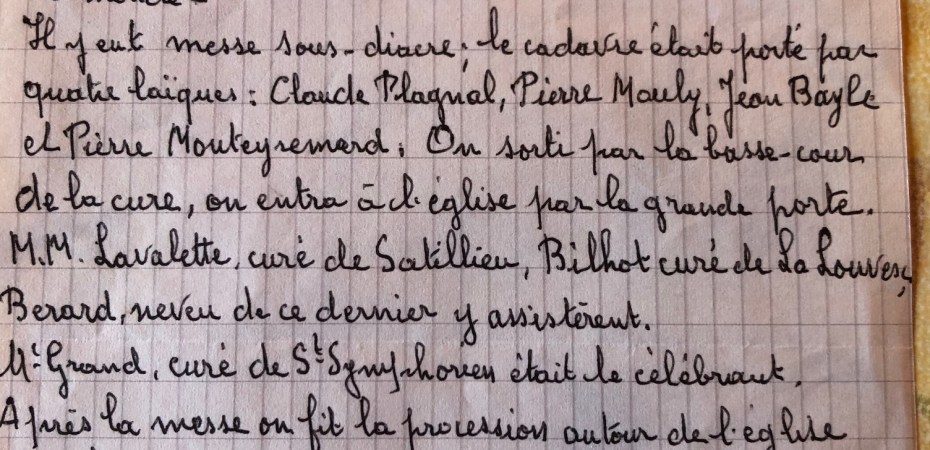 Il y eut messe sous-diacre; le cadavre était porté par
quatre laïques: Claude Plagnal, Pierre Mouly, Jean Bayle
et Pierre Monteyremard. On sorti par la basse-cour
de la cure, on entra à l'église par la grande porte.
M.M. Lavalette, curé de Satillieu, Bilhot curé de La Louvesc,
Berard, neveu de ce dernier y assistèrent.
Mr Grand, curé de St Symphorien était le célébrant.
Après la messe on fit la procession autour de l'église